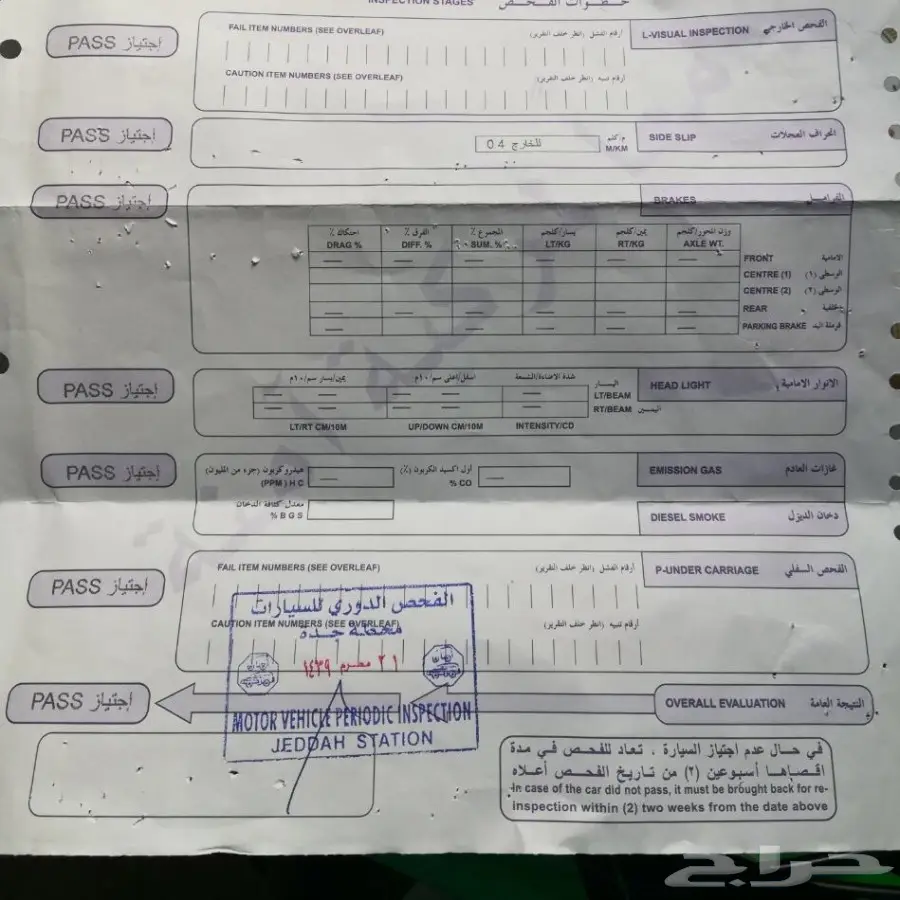 INSPECTION STAGES خطوات الفحص
PASS إجتياز
FAIL ITEM NUMBERS (SEE OVERLEAF) أرقام الفشل (انظر خلف التقرير)
L-VISUAL INSPECTION الفحص الخارجي
CAUTION ITEM NUMBERS (SEE OVERLEAF) أرقام تنبيه (انظر خلف التقرير)
PASS إجتياز
للخارج 04
م/كلم
M/KM
SIDE SLIP انحراف العجلات
PASS إجتياز
BRAKES الفرامل
احتكاك % الفرق % المجموع % يسار/كلجم يمين/كلجم وزن المحور/كلجم
DRAG % DIFF. % SUM. % LT/KG RT/KG AXLE WT.
FRONT الامامية
CENTRE (1) الوسطى (١)
CENTRE (2) الوسطى (٢)
REAR خلفية
PARKING BRAKE فرملة اليد
PASS إجتياز
يمين/يسار سم/١٠م اسفل/اعلى سم/١٠م شدة الاضاءة/الشمعة
اليسار
LT/BEAM
RT/BEAM اليمين
HEAD LIGHT الانوار الامامية
LT/RT CM/10M UP/DOWN CM/10M INTENSITY/CD
PASS إجتياز
هيدروكربون (جزء من المليون)
(PPM) H C
أول اكسيد الكربون (٪)
% CO
EMISSION GAS غازات العادم
معدل كثافة الدخان
% B G S
DIESEL SMOKE دخان الديزل
PASS إجتياز
FAIL ITEM NUMBERS (SEE OVERLEAF) أرقام الفشل (انظر خلف التقرير)
P-UNDER CARRIAGE الفحص السفلي
CAUTION ITEM NUMBERS (SEE OVERLEAF) أرقام تنبيه (انظر خلف التقرير)
الفحص الدوري للسيارات
محطة جدة
٢١ محرم ١٤٣٩
MOTOR VEHICLE PERIODIC INSPECTION
JEDDAH STATION
PASS إجتياز
OVERALL EVALUATION النتيجة العامة
في حال عدم اجتياز السيارة ، تعاد للفحص في مدة
اقصاها أسبوعين (٢) من تاريخ الفحص أعلاه
In case of the car did not pass, it must be brought back for re-
inspection within (2) two weeks from the date above
حراج